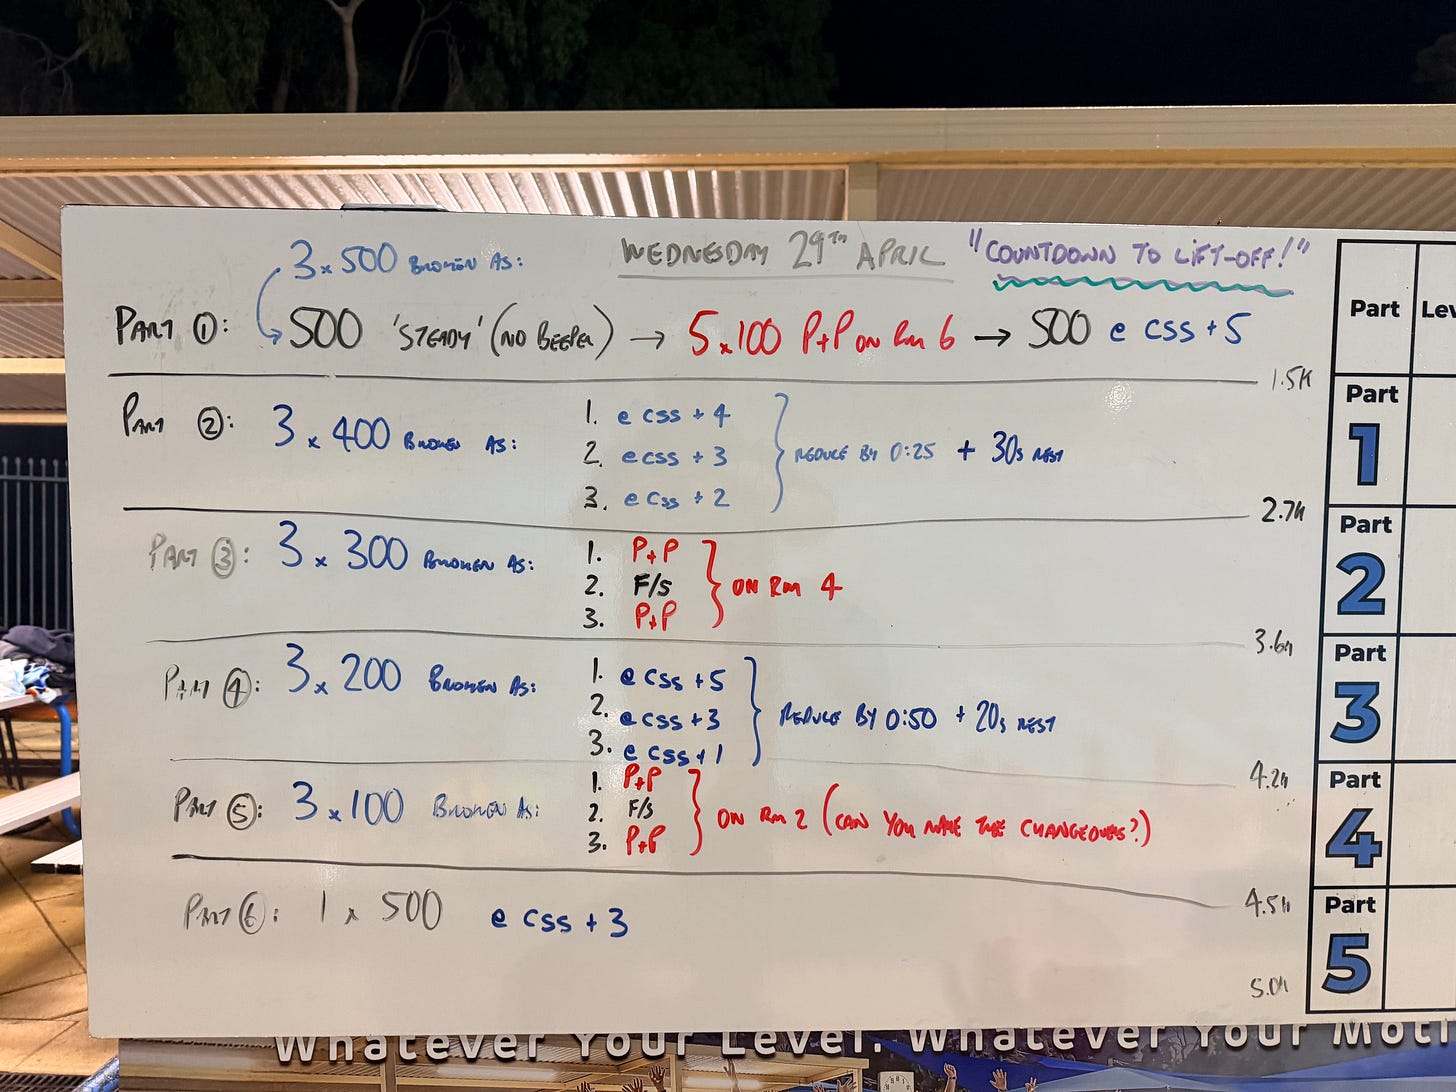 WEDNESDAY 29TH APRIL "COUNTDOWN TO LIFT-OFF!"
3x500 BROKEN AS:
PART ①: 500 'STEADY' (NO BEEPER) → 5x100 P+P ON RM 6 → 500 @ CSS+5
1.5K
PART ②: 3x400 BROKEN AS:
1. @ CSS+4
2. @ CSS+3
3. @ CSS+2
REDUCE BY 0:25 + 30s REST
2.7K
PART ③: 3x300 BROKEN AS:
1. P+P
2. F/S
3. P+P
ON RM 4
3.6K
PART ④: 3x200 BROKEN AS:
1. @ CSS+5
2. @ CSS+3
3. @ CSS+1
REDUCE BY 0:50 + 20s REST
4.2K
PART ⑤: 3x100 BROKEN AS:
1. P+P
2. F/S
3. P+P
ON RM 2 (CAN YOU MAKE THE CHANGEOVERS?)
4.5K
PART ⑥: 1x500 @ CSS+3
5.0K
Part
Part
1
Part
2
Part
3
Part
4
Part
5
Whatever Your Level. Whatever Your